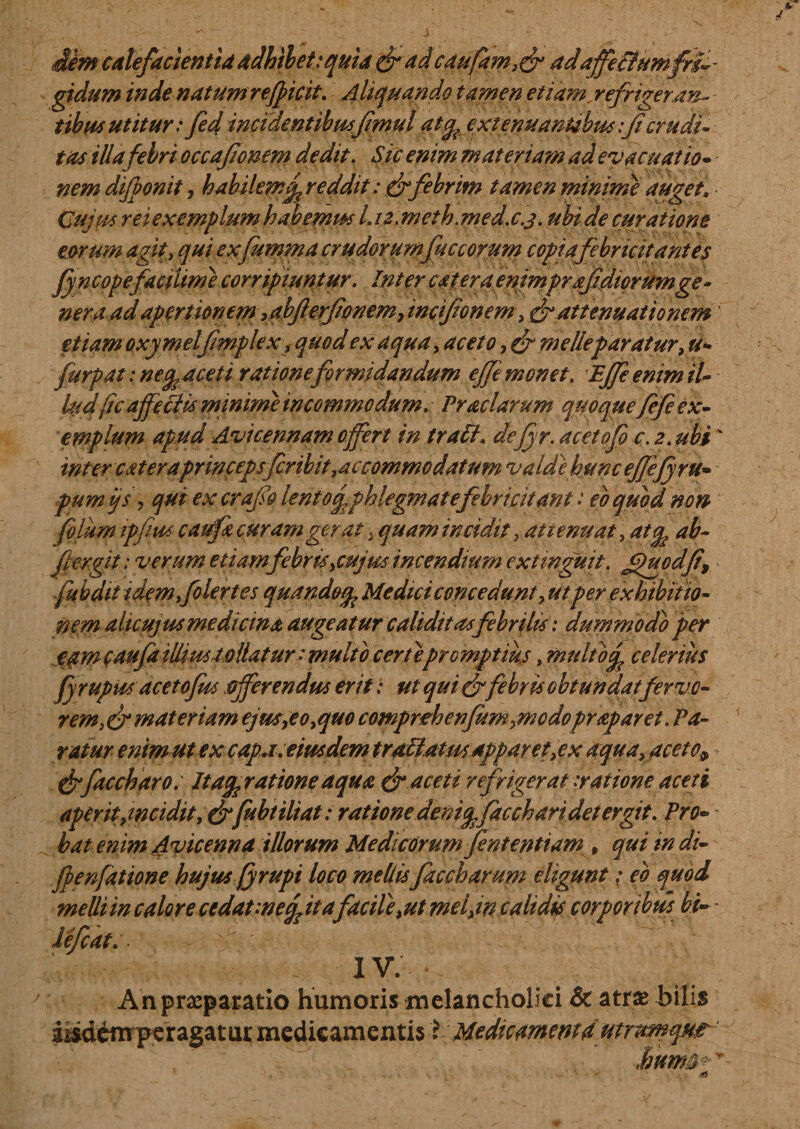 dem calefacientia adhibet: quia & ad causam, & ad affectum fri-
gidum inde natum respicit. Aliquando tamen etiam refrigeran-
tibus utitur: sed incidentibus simul atq; extenuantibus: si crudi-
tas illa febri occasionem dedit. Sic enim materiam ad evacuatio-
nem disponit, habilemq; reddit: & febrim tamen minimè auget.
Cujus rei exemplum habemus l. 12. meth. med. c. 3. ubi de curatione
eorum agit, qui ex summa crudorum succorum copia febricitantes
syncope facilimè corripiuntur. Inter cætera enim præsidiorum ge-
nera ad apertionem, abstersionem, incisionem, & attenuationem
etiam oxymel simplex, quod ex aqua, aceto, & melle paratur, u-
surpat: neq; aceti ratione formidandum esse monet. Esse enim il-
lud sic affectis minimè incommodum. Præclarum quoque sese ex-
emplum apud Avicennam offert in tract. de syr. acetoso c. 2. ubi
inter cætera princeps scribit, accommodatum valdè hunc esse syru-
pum ijs, qui ex crasso lentoq; phlegmate febricitant: eò quòd non
solùm ipsius causæ curam gerat, quam incidit, attenuat, atq; ab-
stergit: verum etiam febris, cujus incendium extinguit. Quod si,
subdit idem, solertes quandoq; Medici concedunt, ut per exhibitio-
nem alicujus medicinæ augeatur caliditas febrilis: dummodò per
eam causa illius tollatur: multò certè promptius, multòq; celerius
syrupus acetosus offerendus erit: ut qui & febris obtundat fervo-
rem, & materiam ejus, eo, quo comprehensum, modo præparet. Pa-
ratur enim ut ex cap. 1. eiusdem tractatus apparet, ex aqua, aceto,
& saccharo. Itaq; ratione aquæ & aceti refrigerat: ratione aceti
aperit, incidit, & subtiliat: ratione deniq; sacchari detergit. Pro-
bat enim Avicenna illorum Medicorum sententiam, qui in di-
spensatione hujus syrupi loco mellis saccharum eligunt: eò quod
melli in calore cedat: neq; ita facilè, ut mel, in calidis corporibus bi-
lescat.
IV.
An præparatio humoris melancholici & atræ bilis
iisdém peragatur medicamentis? Medicamenta utrumque
humo-